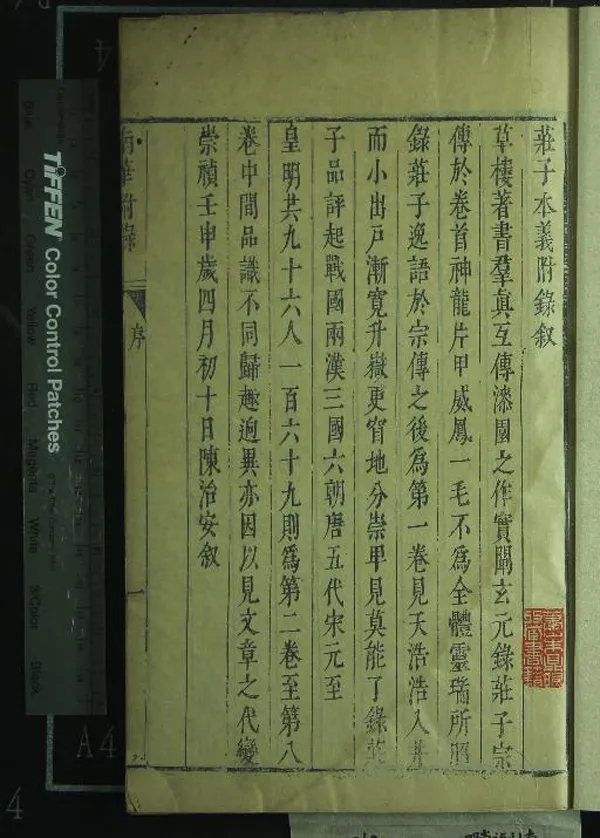 莊子本義附錄叙
草樓著書羣眞互傳漆園之作實闡玄元錄莊子宗
傳於卷首神龍片甲威鳳一毛不爲全體靈瑞所昭
錄莊子逸語於宗傳之後爲第一卷見天浩浩入井
而小出戶漸寬升嶽更窅地分崇卑見莫能了錄莊
子品評起戰國兩漢三國六朝唐五代宋元至
皇明共九十六人一百六十九則爲第二卷至第八
卷中間品識不同歸趣逈異亦因以見文章之代變
崇禎壬申歲四月初十日陳治安叙
南華附錄
序
一
TIFFEN Color Control Patches
Blue
Cyan
Green
Yellow
Red
Magenta
White
3/Color
Black
A4
4